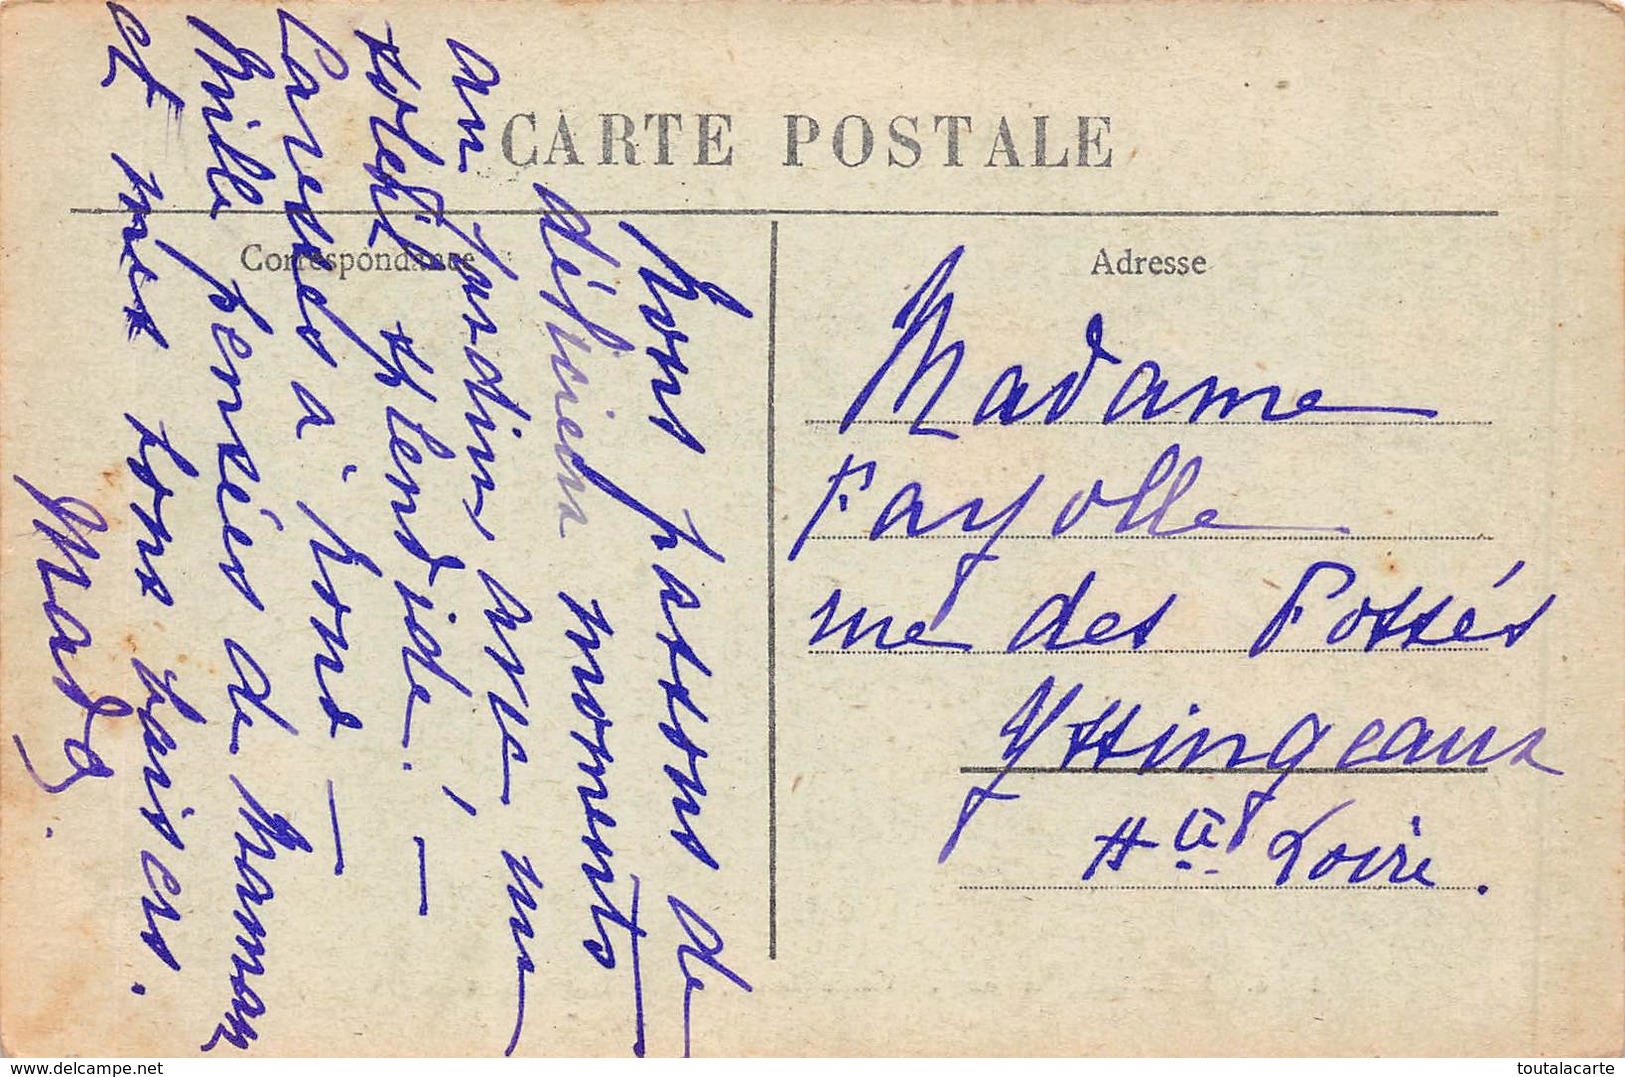 CARTE POSTALE
Correspondance
Adresse
Nous passons de
délicieux moments
au jardin avec un
soleil splendide! —
Caresses à tous —
Mille pensées de Maman
et mes bons baisers.
Madame
Fayolle
rue des Fossés
Yssingeaux
Hte Loire.
www.delcampe.net
toutalacarte